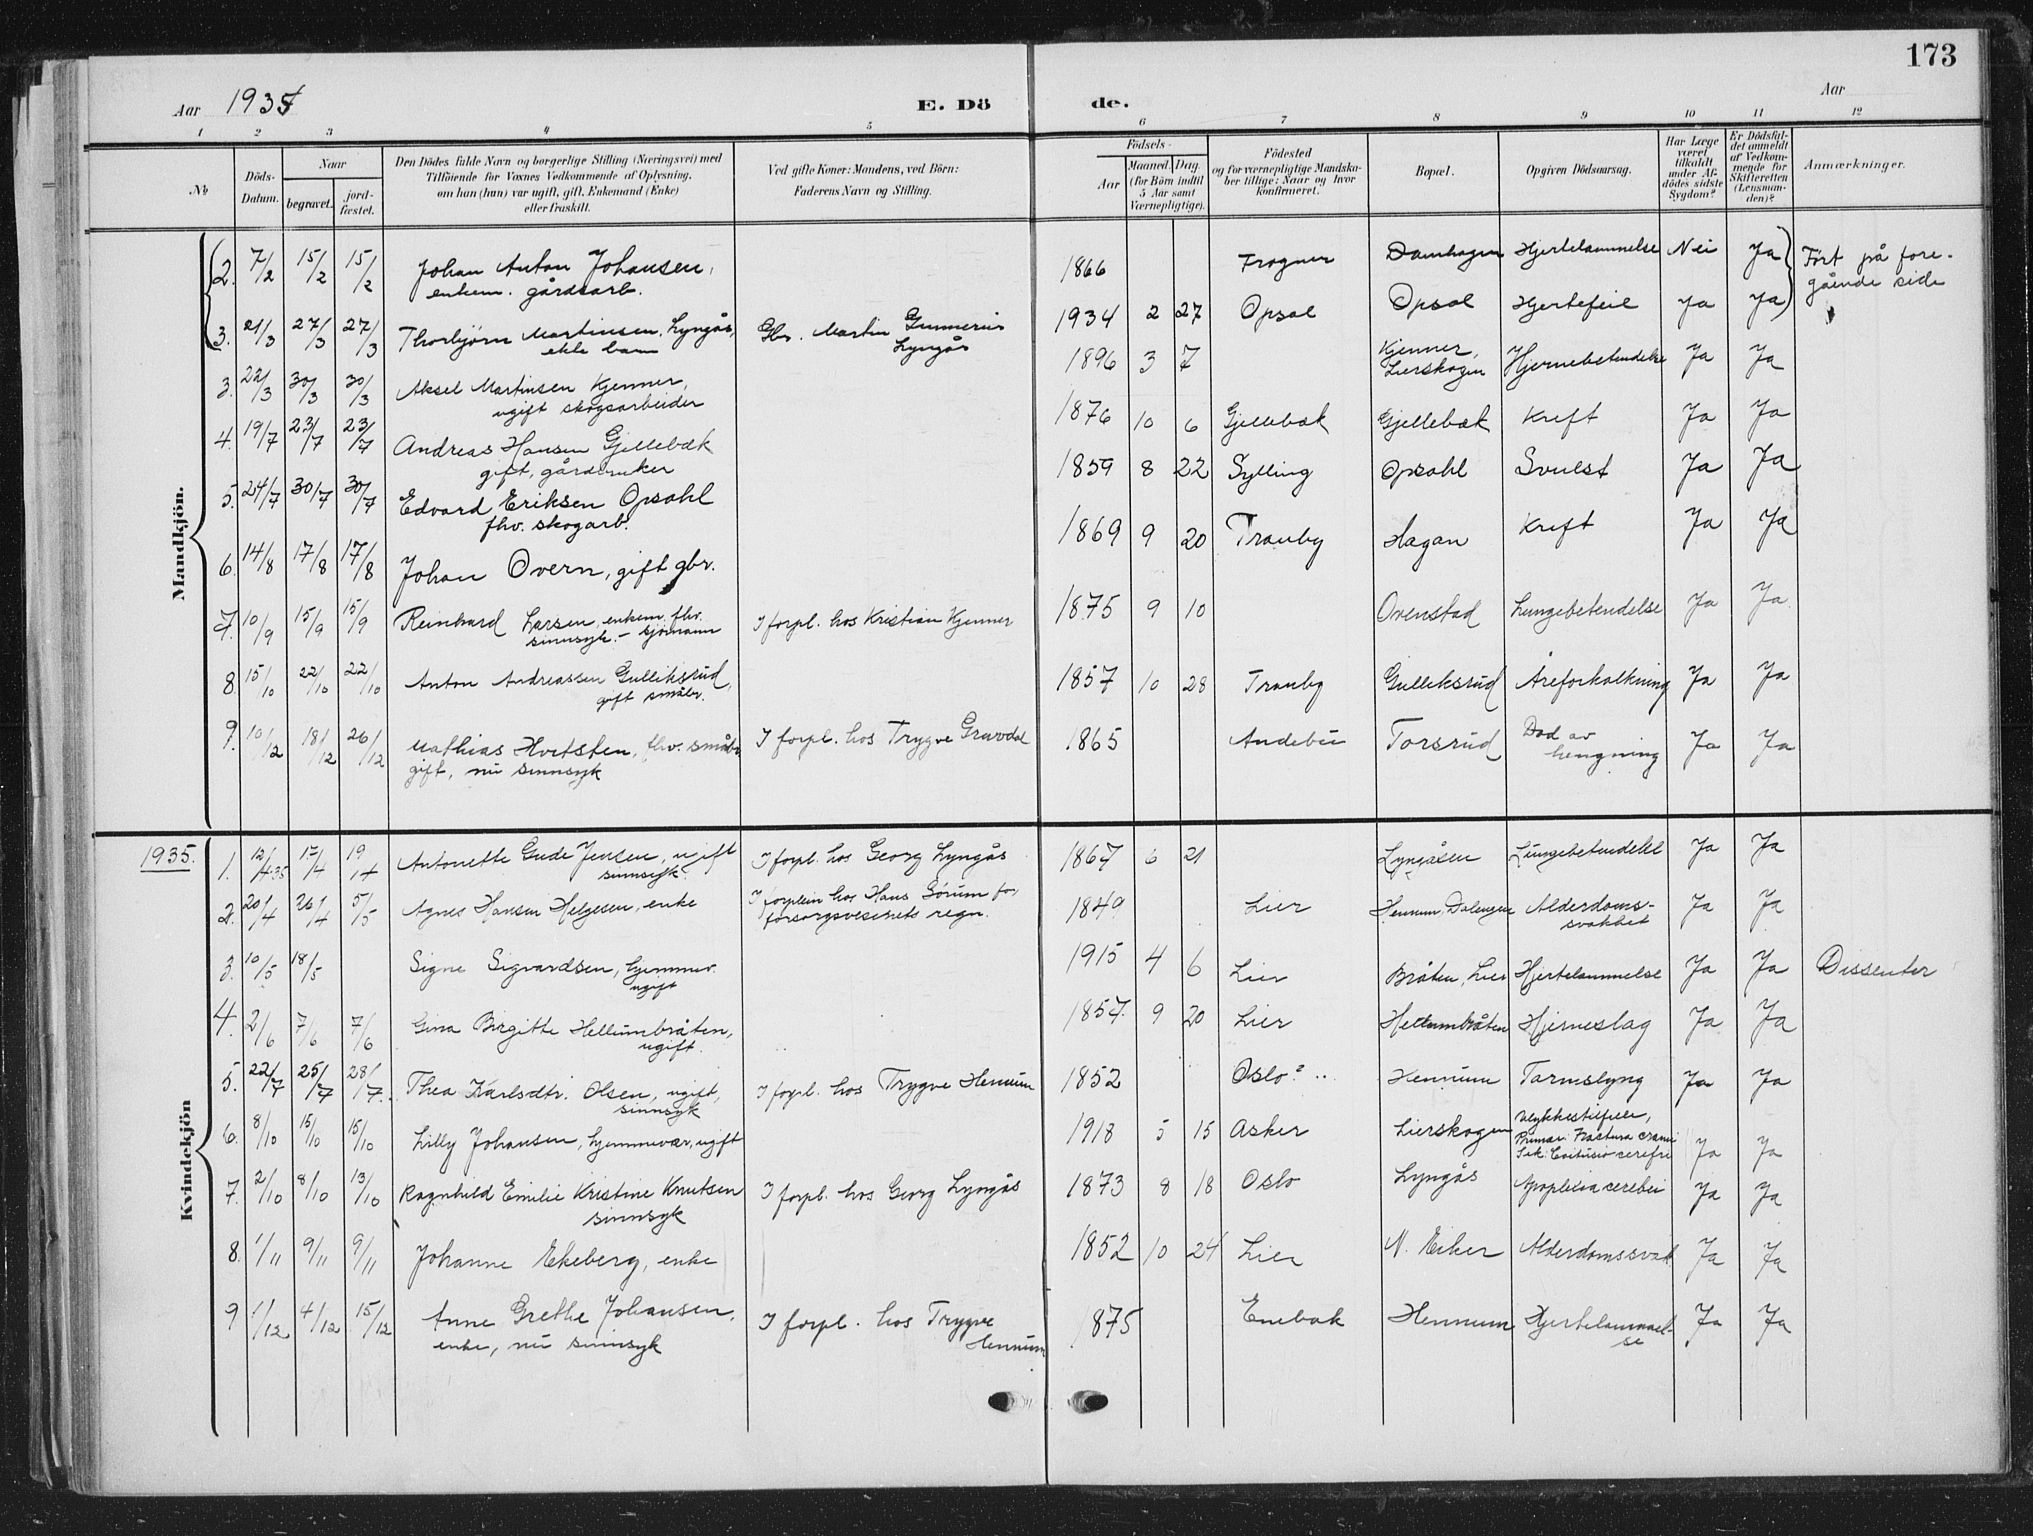 173
Aar 1935
E. Dö de.
Aar
1 2 3 4 5 6 7 8 9 10 11 12
№
Döds-Datum.
Naar
begravet.
jord-fæstet.
Den Dödes fulde Navn og borgerlige Stilling (Næringsvei) med
Tilföiende for Voxnes Vedkommende af Oplysning,
om han (hun) var ugift, gift, Enkemand (Enke)
eller fraskilt.
Ved gifte Koner: Mandens, ved Börn:
Faderens Navn og Stilling.
Födsels-
Aar
Maaned. Dag.
(for Börn indtil
5 Aar samt
Værnepligtige).
Födested
og for værnepligtige Mandska-
ber tillige: Naar og hvor
konfirmeret.
Bopæl.
Opgiven Dödsaarsag.
Har Læge
været
tilkaldt
under Af-
dödes sidste
Sygdom?
Er Dödsfal-
det anmeldt
af Vedkom-
mende for
Skifteretten
(Lensman-
den)?
Anmærkninger.
Mandkjön.
2. 7/2 15/2 15/2 Johan Anton Johansen, 1866 Frogner Damhagen Hjertelammelse Nei Ja Fört på fore-
enkem. gårdsarb. gående side
3. 21/3 27/3 27/3 Thorbjörn Martinsen Lyngås, Gbr. Martin Gunnerius 1934 2 27 Opsal Opsal Hjertefeil Ja Ja
ekte barn Lyngås
3. 22/3 30/3 30/3 Aksel Martinsen Kjenner, 1896 3 7 Kjenner, Hjernebetendelse Ja Ja
ugift skogsarbeider Lierskogen
4. 19/7 23/7 23/7 Andreas Hansen Gjellebæk 1876 10 6 Gjellebæk Gjellebæk Kreft Ja Ja
gift, gårdbruker
5. 24/7 30/7 30/7 Edvard Eriksen Opsahl 1859 8 22 Sylling Opsahl Svulst Ja Ja
fhv. skogarb.
6. 14/8 17/8 17/8 Johan Overn, gift gbr. 1869 9 20 Tranby Hagan Kreft Ja Ja
7. 10/9 15/9 15/9 Reinhard Larsen, enkem. fhv. I forpl. hos Kristian Kjenner 1875 9 10 Ovenstad Lungebetendelse Ja Ja
sinnsyk. - sjömann
8. 15/10 22/10 22/10 Anton Andreassen Gulliksrud, 1857 10 28 Tranby Gulliksrud Åreforkalkning Ja Ja
gift småbr.
9. 10/12 18/12 26/12 Mathias Hvitsten, fhv. småbr. I forpl. hos Trygve Gravdal 1865 Andebu Torsrud Död av Ja Ja
gift, nu sinnsyk hengning
1935.
Kvindekjön
1. 12/4 35 17/4 19/4 Antonette Gude Jensen, ugift I forpl. hos Georg Lyngås 1867 6 21 Lyngåsen Lungebetendelse Ja Ja
sinnsyk
2. 20/4 26/4 5/5 Agnes Hansen Helgesen, enke I forplein hos Hans Sörum for 1849 Lier Hennum, Dalengen Alderdoms- Ja Ja
forsorgsvesenets regn. svakhet
3. 10/5 18/5 Signe Sigvardsen, hjemmev. 1915 4 6 Lier Bråten, Lier Hjertelammelse Ja Ja Dissenter
ugift
4. 2/6 7/6 7/6 Gina Birgitte Hellumbråten, 1857 9 20 Lier Hellumbråten Hjerneslag Ja Ja
ugift.
5. 22/7 25/7 28/7 Thea Karlsdtr. Olsen, ugift, I forpl. hos Trygve Hennum 1852 Oslo? Hennum Tarmslyng Ja Ja
sinnsyk
6. 8/10 15/10 15/10 Lilly Johansen, hjemmevær, ugift 1918 5 15 Asker Lierskogen Ulykkestilfelle,
Primær: Fractura cranii
Sek. cerebri Ja Ja
7. 2/10 8/10 13/10 Ragnhild Emilie Kristine Knutsen I forpl. hos Georg Lyngås 1873 8 18 Oslo Lyngås Apoplexia cerebri Ja Ja
sinnsyk
8. 1/11 9/11 9/11 Johanne Ekeberg, enke 1852 10 24 Lier N. Eiker Alderdomssvak. Ja Ja
9 1/12 4/12 15/12 Anne Grethe Johansen, I forpl. hos Trygve 1875 Enebak Hennum Hjertelammel- Ja Ja
enke, nu sinnsyk Hennum se